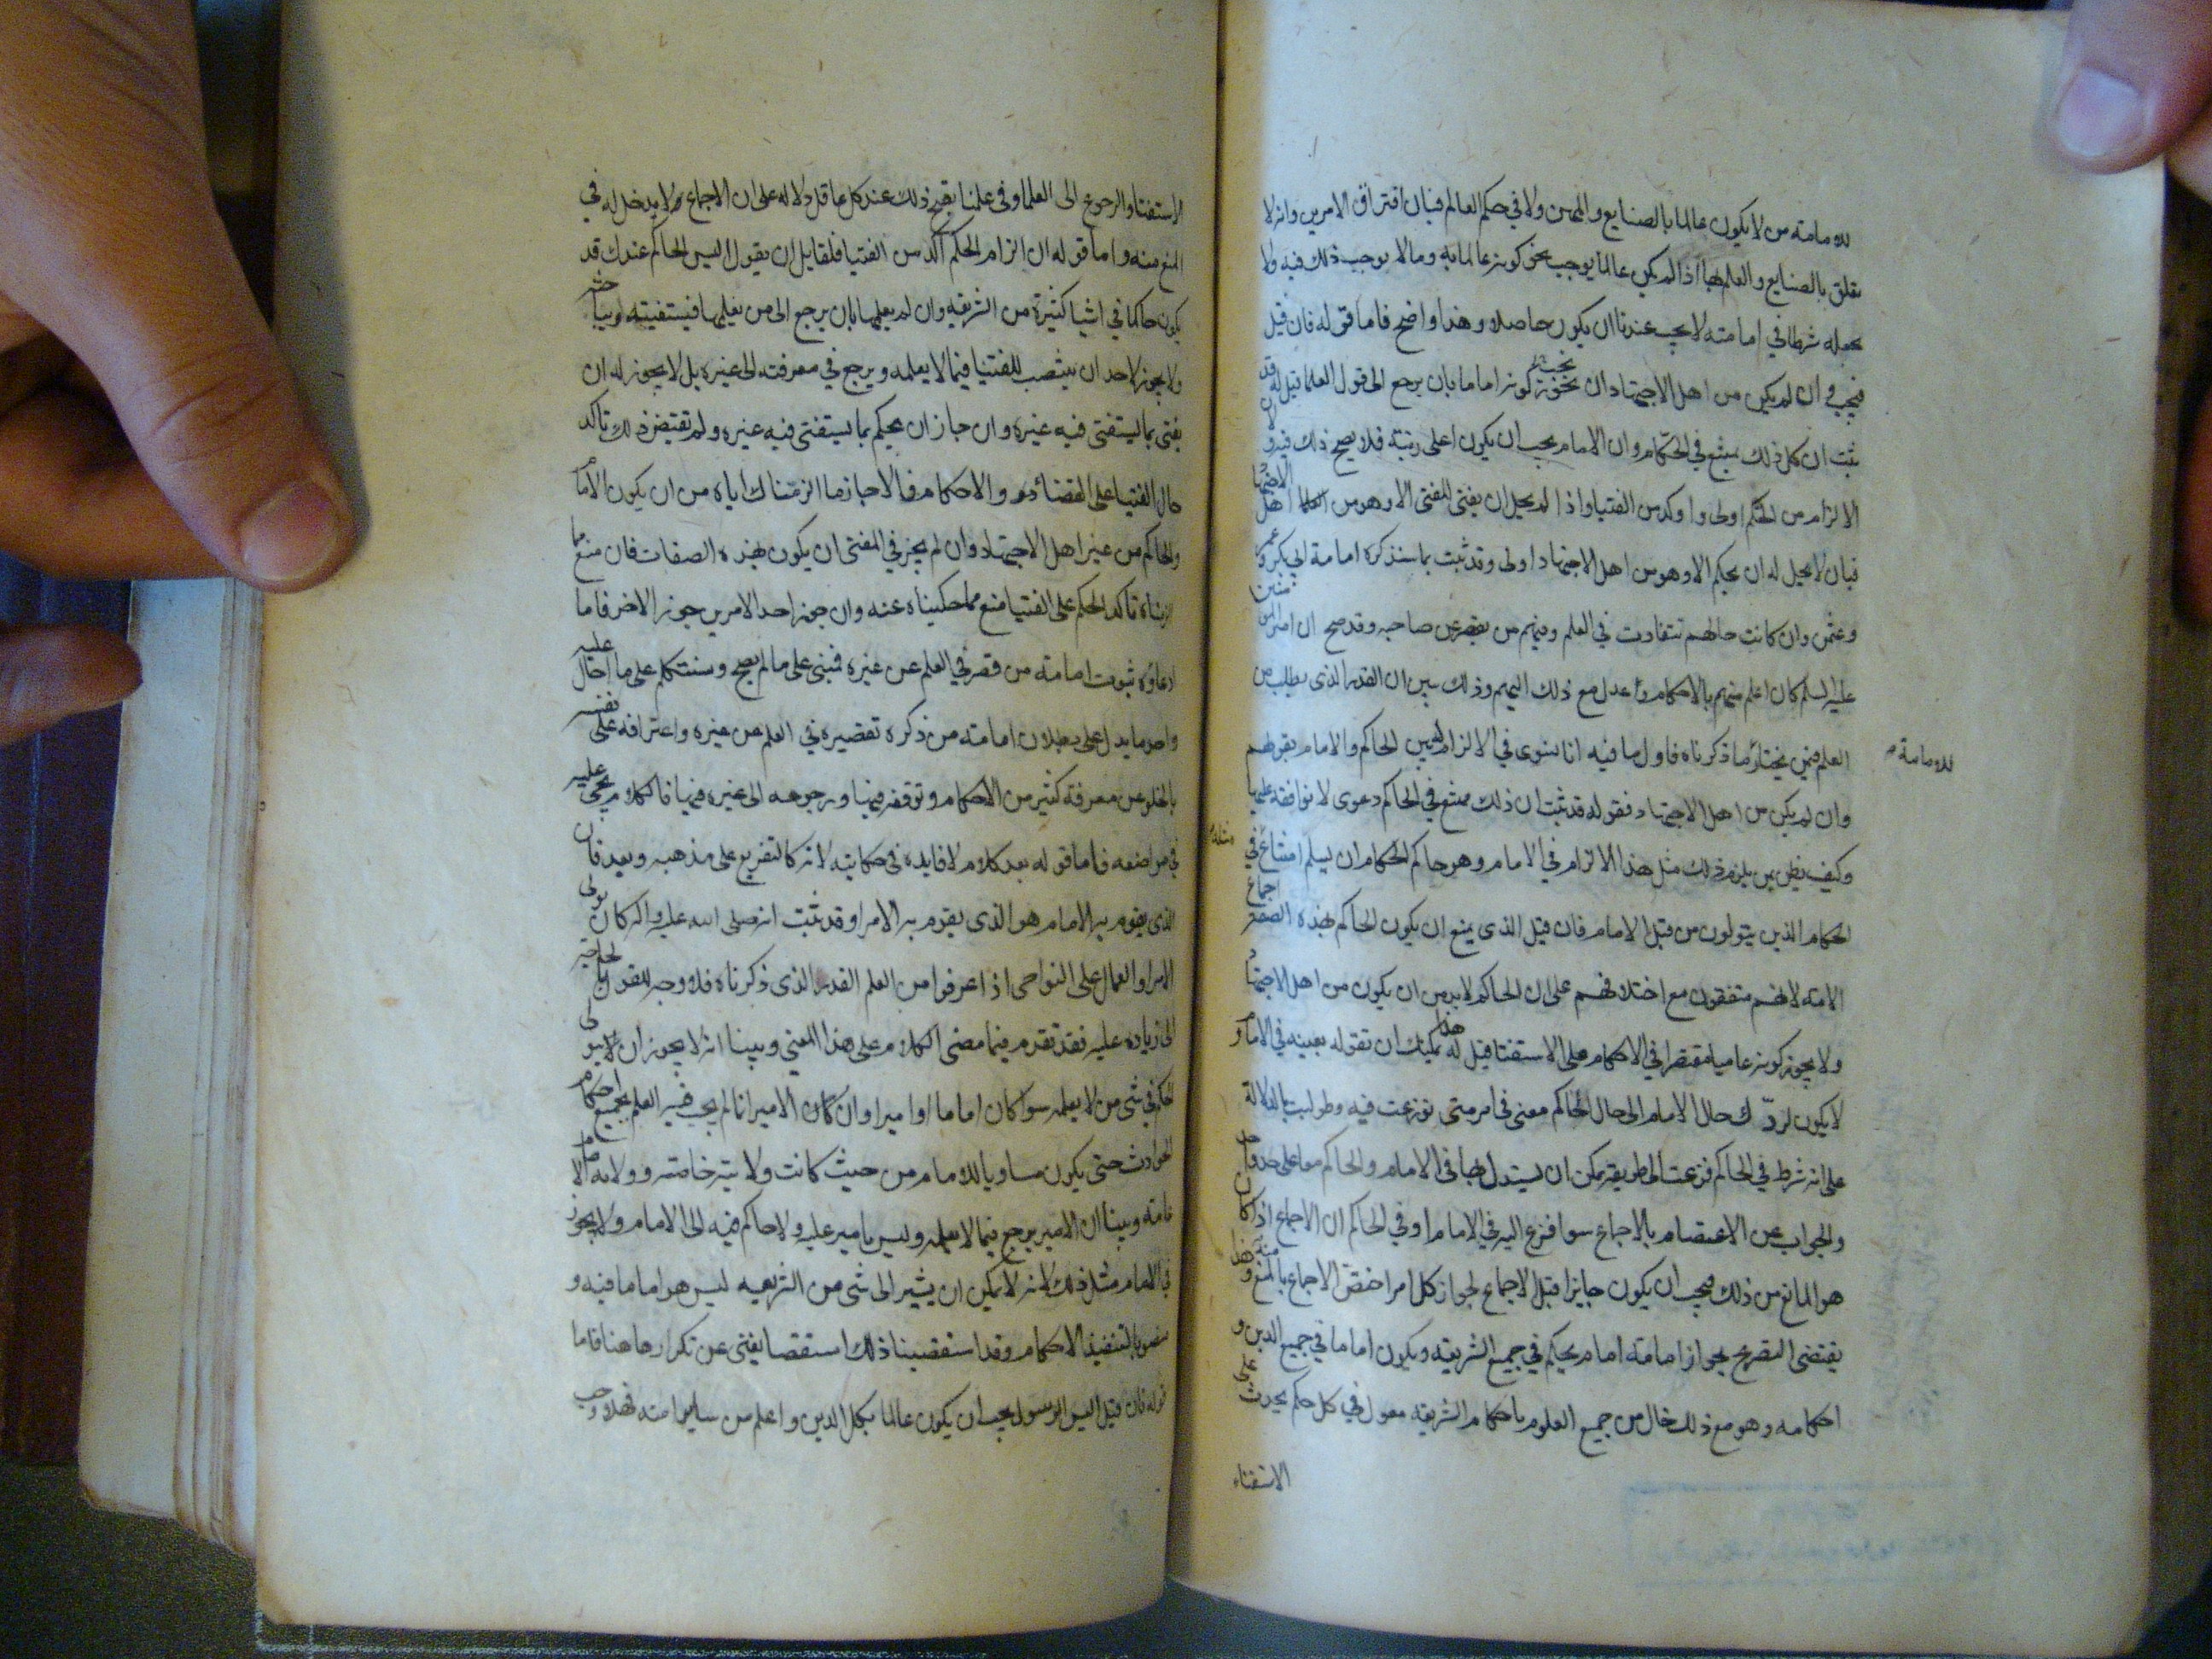 للامامة من لا يكون عالما بالصنايع والمهن ولا في حكم العالم فبان افتراق الامرين وانه لا
تعلق بالصنايع والعلم بها اذا لم يكن عالما يوجب نحو كونه عالما به ومالا يوجب ذلك فيه ولا
يجعله شرطا في امامته لا يجب عندنا ان يكون حاصلا وهذا واضح فاما قوله فان قيل
فيجب في ان لم يكن من اهل الاجتهاد ان كونه اماما بان يرجع الى قول العلما قيل له قد
ثبت ان كل ذلك يمتنع في الحكام وان الامام يجب ان يكون اعلى رتبة فلا يصح ذلك فيه ولان
الالزام من الحكم اولى واوكد من الفتيا واذا لم يحل ان يفتي المفتي الا وهو من اهل الاجتهاد
فبان لا يحل له ان يحكم الا وهو من اهل الاجتهاد اولى وقد ثبت بما سنذكره امامة ابي بكر وعمر
وعثمن وان كانت حالهم تتفاوت في العلم وفيهم من يقصر عن صاحبه وقد صح ان امير المؤمنين
عليه السلم كان اعلم منهم بالاحكام واعدل مع ذلك اليهم وذلك يبين ان القدر الذى يطلب من
العلم فيمن يختار ما ذكرناه فاول ما فيه انا نسوى في الالزام بين الحاكم والامام بقولهم
للامامة
وان لم يكن من اهل الاجتهاد فقوله قد ثبت ان ذلك ممتنع في الحاكم دعوى لا نوافقه عليها
وكيف يظن بمن يلزم ذلك مثل هذا الالزام في الامام وهو حاكم الحكام ان يسلم امتناع في
مثله
الحكام الذين يتولون من قبل الامام فان قيل الذى يمنع ان يكون الحاكم بهذه الصفة اجماع
الامة لانهم متفقون مع اختلافهم على ان الحاكم لابد من ان يكون من اهل الاجتهاد
ولا يجوز كونه عاميا مقتصرا في الاحكام على الاستفتا قيل له هذا يمكنك ان تقوله بعينه في الامام و
لا يكون لردك حال الامام الى حال الحاكم معنى في امر متى نوزعت فيه وطولبت بالدلالة
على انه شرط في الحاكم فزعت الى طريقة يمكن ان يستدل بها في الامام والحاكم معا على حد واحد
والجواب عن الاعتصام بالاجماع سوا فزع اليه في الامام او في الحاكم ان الاجماع اذا كان
هو المانع من ذلك فيجب ان يكون جايزا قبل الاجماع لجواز كل امر اختص الاجماع بالمنع منه وهذا
يقتضى التصريح بجواز امامة امام يحكم في جميع الشريعة ويكون اماما في جميع الدين و
احكامه وهو مع ذلك خال من جميع العلوم باحكام الشريعة معول في كل حكم يحدث على
الاستفتاء
الاستفتا والرجوع الى العلما وفى علمنا بقبح ذلك عند كل عاقل دلالة على ان الاجماع لا مدخل له في
المنع منه واما قوله ان الزام الحكم آكد من الفتيا فلقايل ان يقول اليس الحاكم عندك قد
يكون حاكما في اشيا كثيرة من الشريعة وان لم يعلمها بان يرجع الى من يعلمها فيستفتيه
ولا يجوز لاحد ان ينتصب للفتيا فيما لا يعلمه ويرجع في معرفته الى غيره بل لا يجوز له ان
يفتى بما يستفتى فيه غيره وان جاز ان يحكم بما يستفتى فيه غيره ولم تقتض ذلك تاكد
حال الفتيا على القضا والاحكام فالا جاز ما الزمناك اياه من ان يكون الامام
والحاكم من غير اهل الاجتهاد وان لم يجز في المفتى ان يكون بهذه الصفات فان منع مما
الزمناه تاكد الحكم على الفتيا منع مما حكيناه عنه وان جوز احد الامرين جوز الاخر فاما
ادعاؤه ثبوت امامة من قصر في العلم عن غيره فبنى على ما لم يصح وسنتكلم على ما احال عليه
واحد ما يدل على بطلان امامة من ذكره تقصيره في العلم عن غيره واعترافه على نفسه
بالخلو عن معرفة كثير من الاحكام وتوقفه فيها ورجوعه الى غيره فيها فالكلام يجى عليه
في مواضعه فاما قوله بعد كلام لا فايدة في حكايته لانه كالتفريع على مذهبه وبعد فان
الذى يقوم به الامام هو الذى يقوم به الامرا وقد ثبت انه صلى الله عليه واله كان يولى
الامرا والعمال على النواحى اذا عرفوا من العلم القدر الذى ذكرناه فلا وجه للقول بالحاجة
الى زيادة عليه فقد تقدم فيما مضى الكلام على هذا المعنى وبينا انه لا يجوز ان يولى
الحكم في شى من لا يعلمه سوا كان اماما او اميرا وان كان الامير انما لم يجب فيه العلم بجميع احكام
الحوادث حتى يكون مساويا للامام من حيث كانت ولايته خاصة وولاية الامام
عامة وبينا ان الامير يرجع فيما لا يعلمه وليس بامير عليه ولا حاكم فيه الى الامام ولا يجوز
في الامام مثل ذلك لانه لا يمكن ان يشير الى شى من الشريعة ليس هو اماما فيه و
منصوبا لتنفيذ الاحكام وقد استقصينا ذلك استقصا يغنى عن تكراره هاهنا فاما
قوله فان قيل اليس الرسول يجب ان يكون عالما بكل الدين واعلم من ساير امته فهلا وجب